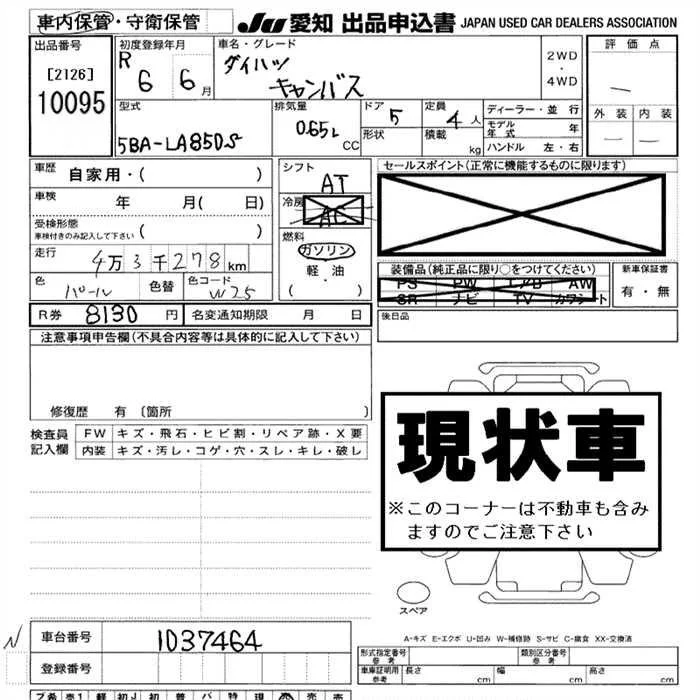 車内保管・守衛保管
JU 愛知 出品申込書 JAPAN USED CAR DEALERS ASSOCIATION
出品番号
[2126]
10095
初度登録年月
R 6 6月
車名・グレード
ダイハツ
キャンバス
2WD
・
4WD
評価点
型式
5BA-LA850S
排気量
0.65L
CC
ドア 5
形状
定員 4人
積載 kg
ディーラー・並行
モデル年式 年
ハンドル 左・右
外装 内装
車歴 自家用・( )
車検 年 月( 日)
受検形態
車検付きのみ記入して下さい ( )
走行 4万3千278km
色 パール 色替 色コード W25
シフト
AT
冷房
AC
燃料
ガソリン
軽・油
( ・ )
セールスポイント(正常に機能するものに限ります)
装備品(純正品に限り○をつけてください)
PS PW エアB AW
SR ナビ TV カワシート
新車保証書
有・無
後日品
R券 8130円 名変通知期限 月 日
注意事項申告欄(不具合内容等は具体的に記入して下さい)
修復歴 有 〔箇所 〕
検査員記入欄
FW キズ・飛石・ヒビ割・リペア跡・X要
内装 キズ・汚レ・コゲ・穴・スレ・キレ・破レ
現状車
※このコーナーは不動車も含み
ますのでご注意下さい
スペア
A-キズ E-エクボ U-凹み W-補修跡 S-サビ C-腐食 XX-交換済
N
車台番号 1037464
登録番号
形式指定番号
参考
類別区分番号
参考
車庫証明用
参考
長さ cm 幅 cm 高さ cm